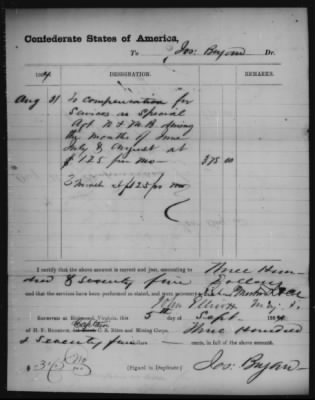 Confederate States of America,
To Jos: Bryan Dr.
1864 DESIGNATION. REMARKS.
Aug 31 To compensation for
Services as Special
Agt N & M B during
the months of June
July & August at
$125 per mo— 375 00
3 months at $125 per mo
I certify that the above account is correct and just, amounting to Three Hun-
dred & seventy five Dollars
and that the services have been performed as stated, and were necessary
RECEIVED at Richmond, Virginia, this 5th day of Sept. 1864
of H. F. C. S. Nitre and Mining Corps, Three Hundred
& Seventy five — cents, in full of the above account.
$375 00/100 (Signed in Duplicate) Jos: Bryan—